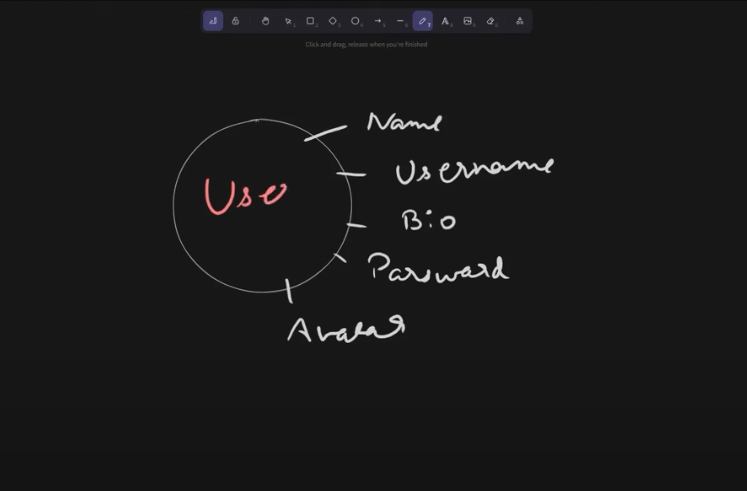 Click and drag, release when you're finished
Name
Username
Use
Bio
Parsward
Avatar